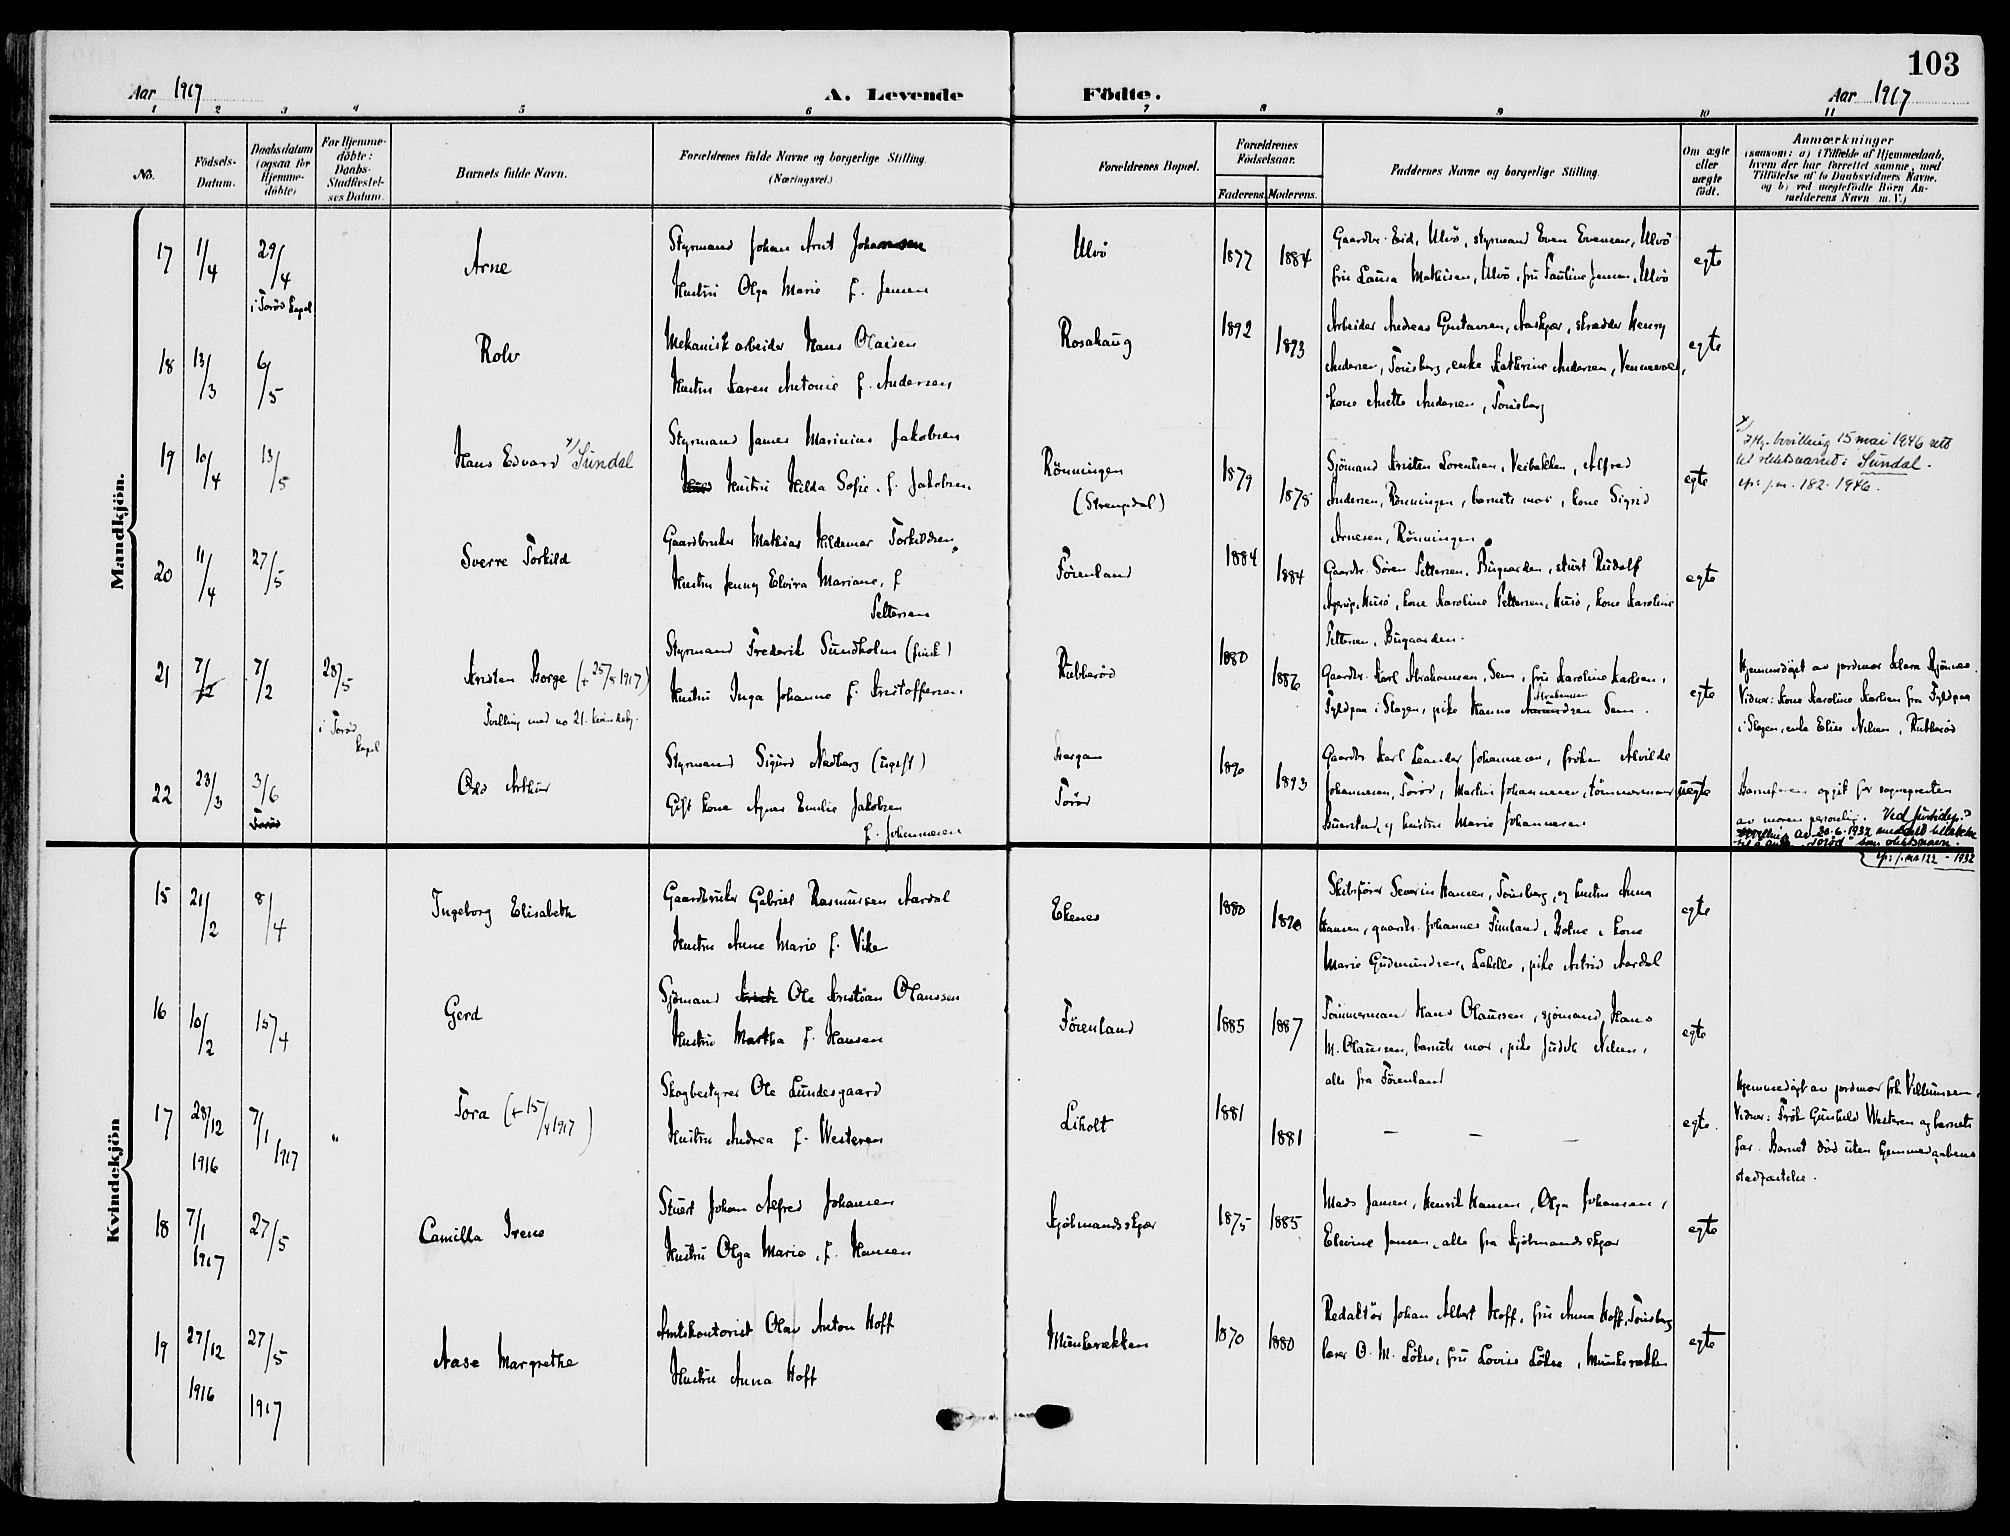 103
Aar 1917
A. Levende
Födte.
Aar 1917
1 2 3 4 5 6 7 8 9 10 11
No.
Födsels-
Datum.
Daabsdatum
(ogsaa for
Hjemme-
döbte)
For Hjemme-
döbte:
Daabs-
Stadfæstel-
ses Datum.
Barnets fulde Navn.
Forældrenes fulde Navne og borgerlige Stilling.
(Næringsvei.)
Forældrenes Bopæl.
Forældrenes
Födselsaar.
Faderens. Moderens.
Faddernes Navne og borgerlige Stilling.
Om ægte
eller
uægte
født.
Anmærkninger
(saasom: a) i Tilfælde af Hjemmedaab,
hvem der har forrettet samme, med
Tilføielse af to Daabsvidners Navne,
og b) ved uægtefödte Börn An-
melderens Navn m. V.)
Mandkjön.
17
11/4
29/4
i Torød kapel
Arne
Styrmand Johan Arnt Johansen
Hustru Olga Marie f. Jensen
Ulvö
1877
1884
Gaardbr. Eid, Ulvö, styrmand Even Evensen, Ulvö
fru Laura Mathisen, Ulvö, fru Pauline Jensen, Ulvö
egte
18
13/3
6/5
Rolv
Mekanisk arbeider Hans Olausen
Hustru Karen Antonie f. Andersen
Rosahaug
1892
1893
Arbeider Andreas Gustavsen, Aaskjær, skrædder Henry
Andersen, Tönsberg, enke Kathrine Andersen,
kone Anette Andersen, Tönsberg
egte
19
10/4
13/5
Hans Edvard x/ Sundal
Styrmand James Marinius Jakobsen
Hustru Hilda Sofie f. Jakobsen
Rönningen
(Strengsdal)
1879
1878
Sjömand Kristen Lorentsen, Veibakken, Alfred
Andersen, Rönningen, barnets mor, kone Sigrid
Arnesen, Rönningen
egte
x/
Iflg. bevilling 15 mai 1946 rett
til slektsnavnet: Sundal.
cfr. j.nr. 182. 1946.
20
11/4
27/5
Sverre Torkild
Gaardbruker Mathias Hildemar Torkildsen
Hustru Jenny Elvira Mariane, f.
Pettersen
Förenland
1884
1884
Gaardbr. Sören Pettersen, Bugaarden, stuert Rudolf
Husö, kone Karoline Pettersen, Husö, kone Karoline
Pettersen, Bugaarden.
egte
21
7/2
7/2
28/5
i Torød
kapel
Kristen Borge (+ 25/8 1917)
Tvilling med no 21. kvindekj.
Styrmand Frederik Sundholm (finsk)
Hustru Inga Johanne f. Kristoffersen
Rubberöd
1880
1886
Gaardbr. Karl Abrahamsen, Sem, fru Karoline Karlsen,
Fyldpaa i Slagen, pike Hanna Abrahamsen Sem.
egte
Hjemmedøpt av jordmor Klara Bjönnes
Vidner: kone Karoline Karlsen fra Fyldpaa
i Slagen, enke Elise Nilsen, Rubberöd
22
23/3
3/6
Torød
Odd Arthur
Styrmand Sigurd Nedberg (ugift)
Gift kone Agnes Emilie Jakobsen
f. Johannesen
Torød
1890
1893
Gaardbr. Karl Leander Johannesen, fröken Alvilde
Johannesen, Torød, Martin Johannesen, tömmermand
og hustru Marie Johannesen
uegte
Barnefaren opgit for sognepresten
av moren personlig. Ved justisdep.s
bevilling av 30.6.1932 meddelt tillatelse
til å anta "Torød" som slektsnavn.
cfr. j.nr 122 - 1932
Kvindekjön
15
21/2
8/4
Ingeborg Elisabeth
Gaardbruker Gabriel Rasmussen Aardal
Hustru Anne Marie f. Vike
Ekenes
1880
1890
Skibsförer Severin Hansen, Tönsberg, og hustru Anna
Hansen, gaardbr. Johannes Fimland, Bolne, kone
Marie Gudmundsen, Lahelle, pike Astrid Aardal
egte
16
10/2
15/4
Gerd
Sjömand Ole Kristian Olaussen
Hustru Martha f. Hansen
Förenland
1885
1887
Tömmerman Hans Olaussen, sjömand Hans
M. Olaussen, barnets mor, pike Judith Nilsen,
alle fra Förenland
egte
17
28/12
1916
7/1 1917
"
Tora (+ 15/4 1917)
Skogbestyrer Ole Lundesgaard
Hustru Andrea f. Westeren
Liholt
1881
1881
— — —
egte.
Hjemmedöpt av jordmor frk. Villumsen.
Vidner: Frök. Gunhild Westeren og barnets
far. Barnet död uten hjemmedaabens
stadfæstelse.
18
7/1
1917
27/5
Camilla Irene
Stuert Johan Alfred Johansen
Hustru Olga Marie, f. Hansen
Kjölmandsskjær
1875
1885
Mads Jansen, Henrik Hansen, Olga Johansen,
Elevine Jensen, alle fra Kjölmandsskjær
egte
19
27/12
1916
27/5
1917
Aase Margrethe
Amtskontorist Olav Anton Hoff
Hustru Anna Hoff
Munkerækken
1870
1880
Redaktör Johan Albert Hoff, fru Anna Hoff, Tönsberg
lærer O. M. Lökse, fru Lovise Lökse, Munkerækken
egte